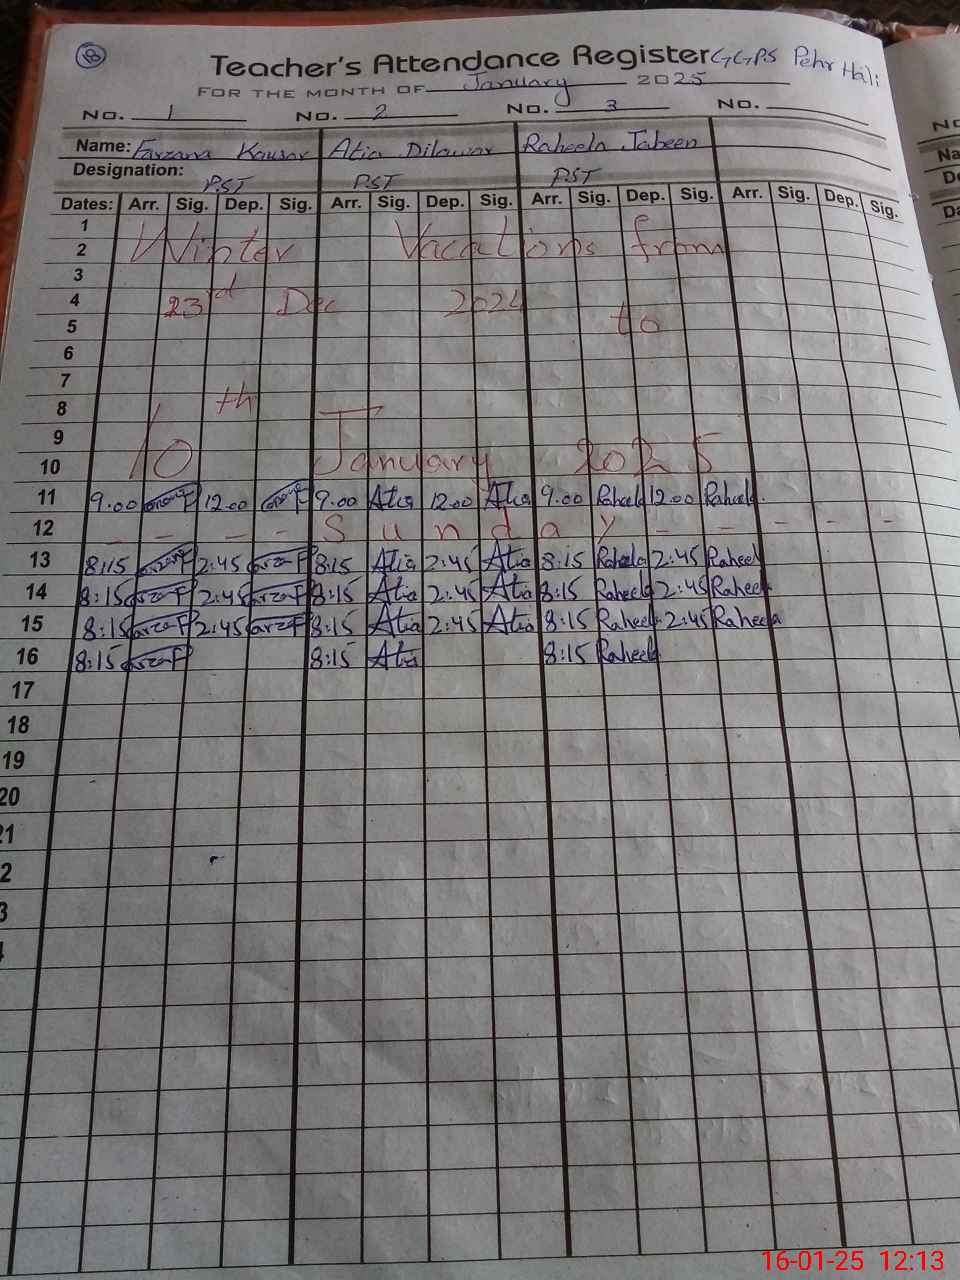 8
Teacher's Attendance Register GGPS Pehr Hali
FOR THE MONTH OF January 2025
No. 1 No. 2 No. 3 No.
Name: Farzana Kausar Atia Dilawar Raheela Jabeen
Designation: PST PST PST
Dates: Arr. Sig. Dep. Sig. Arr. Sig. Dep. Sig. Arr. Sig. Dep. Sig. Arr. Sig. Dep. Sig.
1
2 Winter Vacations from
3
4 23rd Dec 2024 to
5
6
7
8 th
9
10 10 January 2025
11 9.00 12.00 9.00 Atia 12.00 Atia 9.00 Raheela 12.00 Raheela
12 - - - - Sunday - - - - -
13 8:15 2:45 8:15 Atia 2:45 Atia 8:15 Raheela 2:45 Raheela
14 8:15 2:45 8:15 Atia 2:45 Atia 8:15 Raheela 2:45 Raheela
15 8:15 2:45 8:15 Atia 2:45 Atia 8:15 Raheela 2:45 Raheela
16 8:15 8:15 Atia 8:15 Raheela
17
18
19
20
21
2
3
16-01-25 12:13